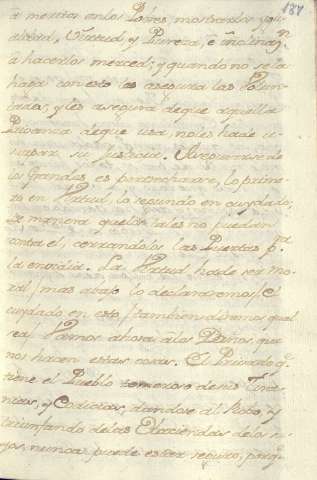 187
a meritos en los Pobres, mostrarles igu-
aldad, Virtud, y Pureza, è inclinaz.n
a hacerlos merced; y quando no se la
haga con esto les asegura las Volun-
tades, y les asegura de que aquella
Privanza de que usa no les hade
su Justicia. Asegurarse de
los Grandes es por otro, lo prime-
ro en Virtud, lo segundo en cuydado;
de manera que los tales no puedan
contra el, cerrandoles las Puertas p.a
la envidia. La Virtud hade ser Mo-
ral / mas abajo lo declararemos / El
cuydado en esto / tambien diremos qual
sea / Vamos ahora à los Daños que
nos hacen estas cosas. El Privado q.e
tiene el Pueblo temeroso de sus
y Codicias, dandose al Robo, y
triumfando de las Haciendas de los
nunca puede estar seguro, porq.e